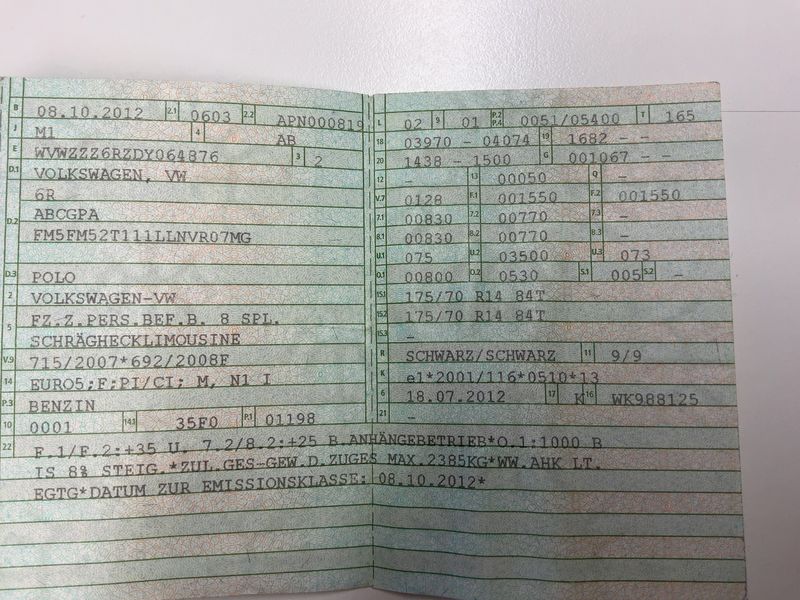 B 08.10.2012 2.1 0603 2.2 APN000819
J M1 4 AB
E WVWZZZ6RZDY064876 3 2
D.1 VOLKSWAGEN, VW
6R
D.2 ABCGPA
FM5FM52T111LLNVR07MG
D.3 POLO
2 VOLKSWAGEN-VW
5 FZ.Z.PERS.BEF.B. 8 SPL.
SCHRÄGHECKLIMOUSINE
V.9 715/2007*692/2008F
14 EURO5;F;PI/CI; M, N1 I
P.3 BENZIN
10 0001 14.1 35F0 P.1 01198
L 02 9 01 P.2 P.4 0051/05400 T 165
18 03970 - 04074 19 1682 - -
20 1438 - 1500 G 001067 - -
12 - 13 00050 Q -
V.7 0128 F.1 001550 F.2 001550
7.1 00830 7.2 00770 7.3 -
8.1 00830 8.2 00770 8.3 -
U.1 075 U.2 03500 U.3 073
O.1 00800 O.2 0530 S.1 005 S.2 -
15.1 175/70 R14 84T
15.2 175/70 R14 84T
15.3 -
R SCHWARZ/SCHWARZ 11 9/9
K e1*2001/116*0510*13
6 18.07.2012 17 K 16 WK988125
21 -
22 F.1/F.2:+35 U. 7.2/8.2:+25 B.ANHÄNGEBETRIEB*O.1:1000 B
IS 8% STEIG.*ZUL.GES-GEW.D.ZUGES MAX.2385KG*WW.AHK LT.
EGTG*DATUM ZUR EMISSIONSKLASSE: 08.10.2012*